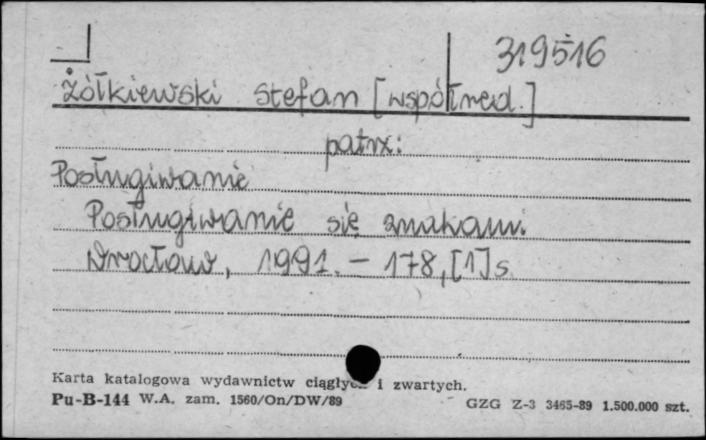 319516
Żółkiewski Stefan [współred.]
patrz:
Posługiwanie
Posługiwanie się znakami.
Wrocław, 1991. – 178, [1] s
Karta katalogowa wydawnictw ciągłych i zwartych.
Pu-B-144 W.A. zam. 1560/On/DW/89 GZG Z-3 3465-89 1.500.000 szt.